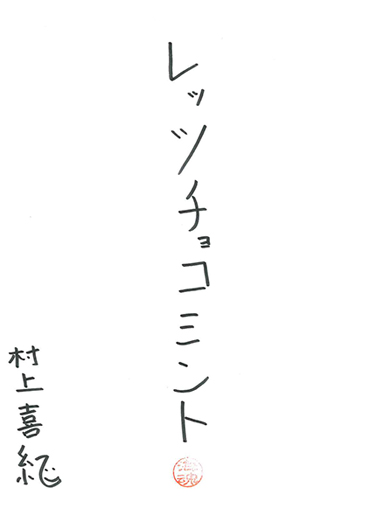 レッツチョコミント
村上喜紀